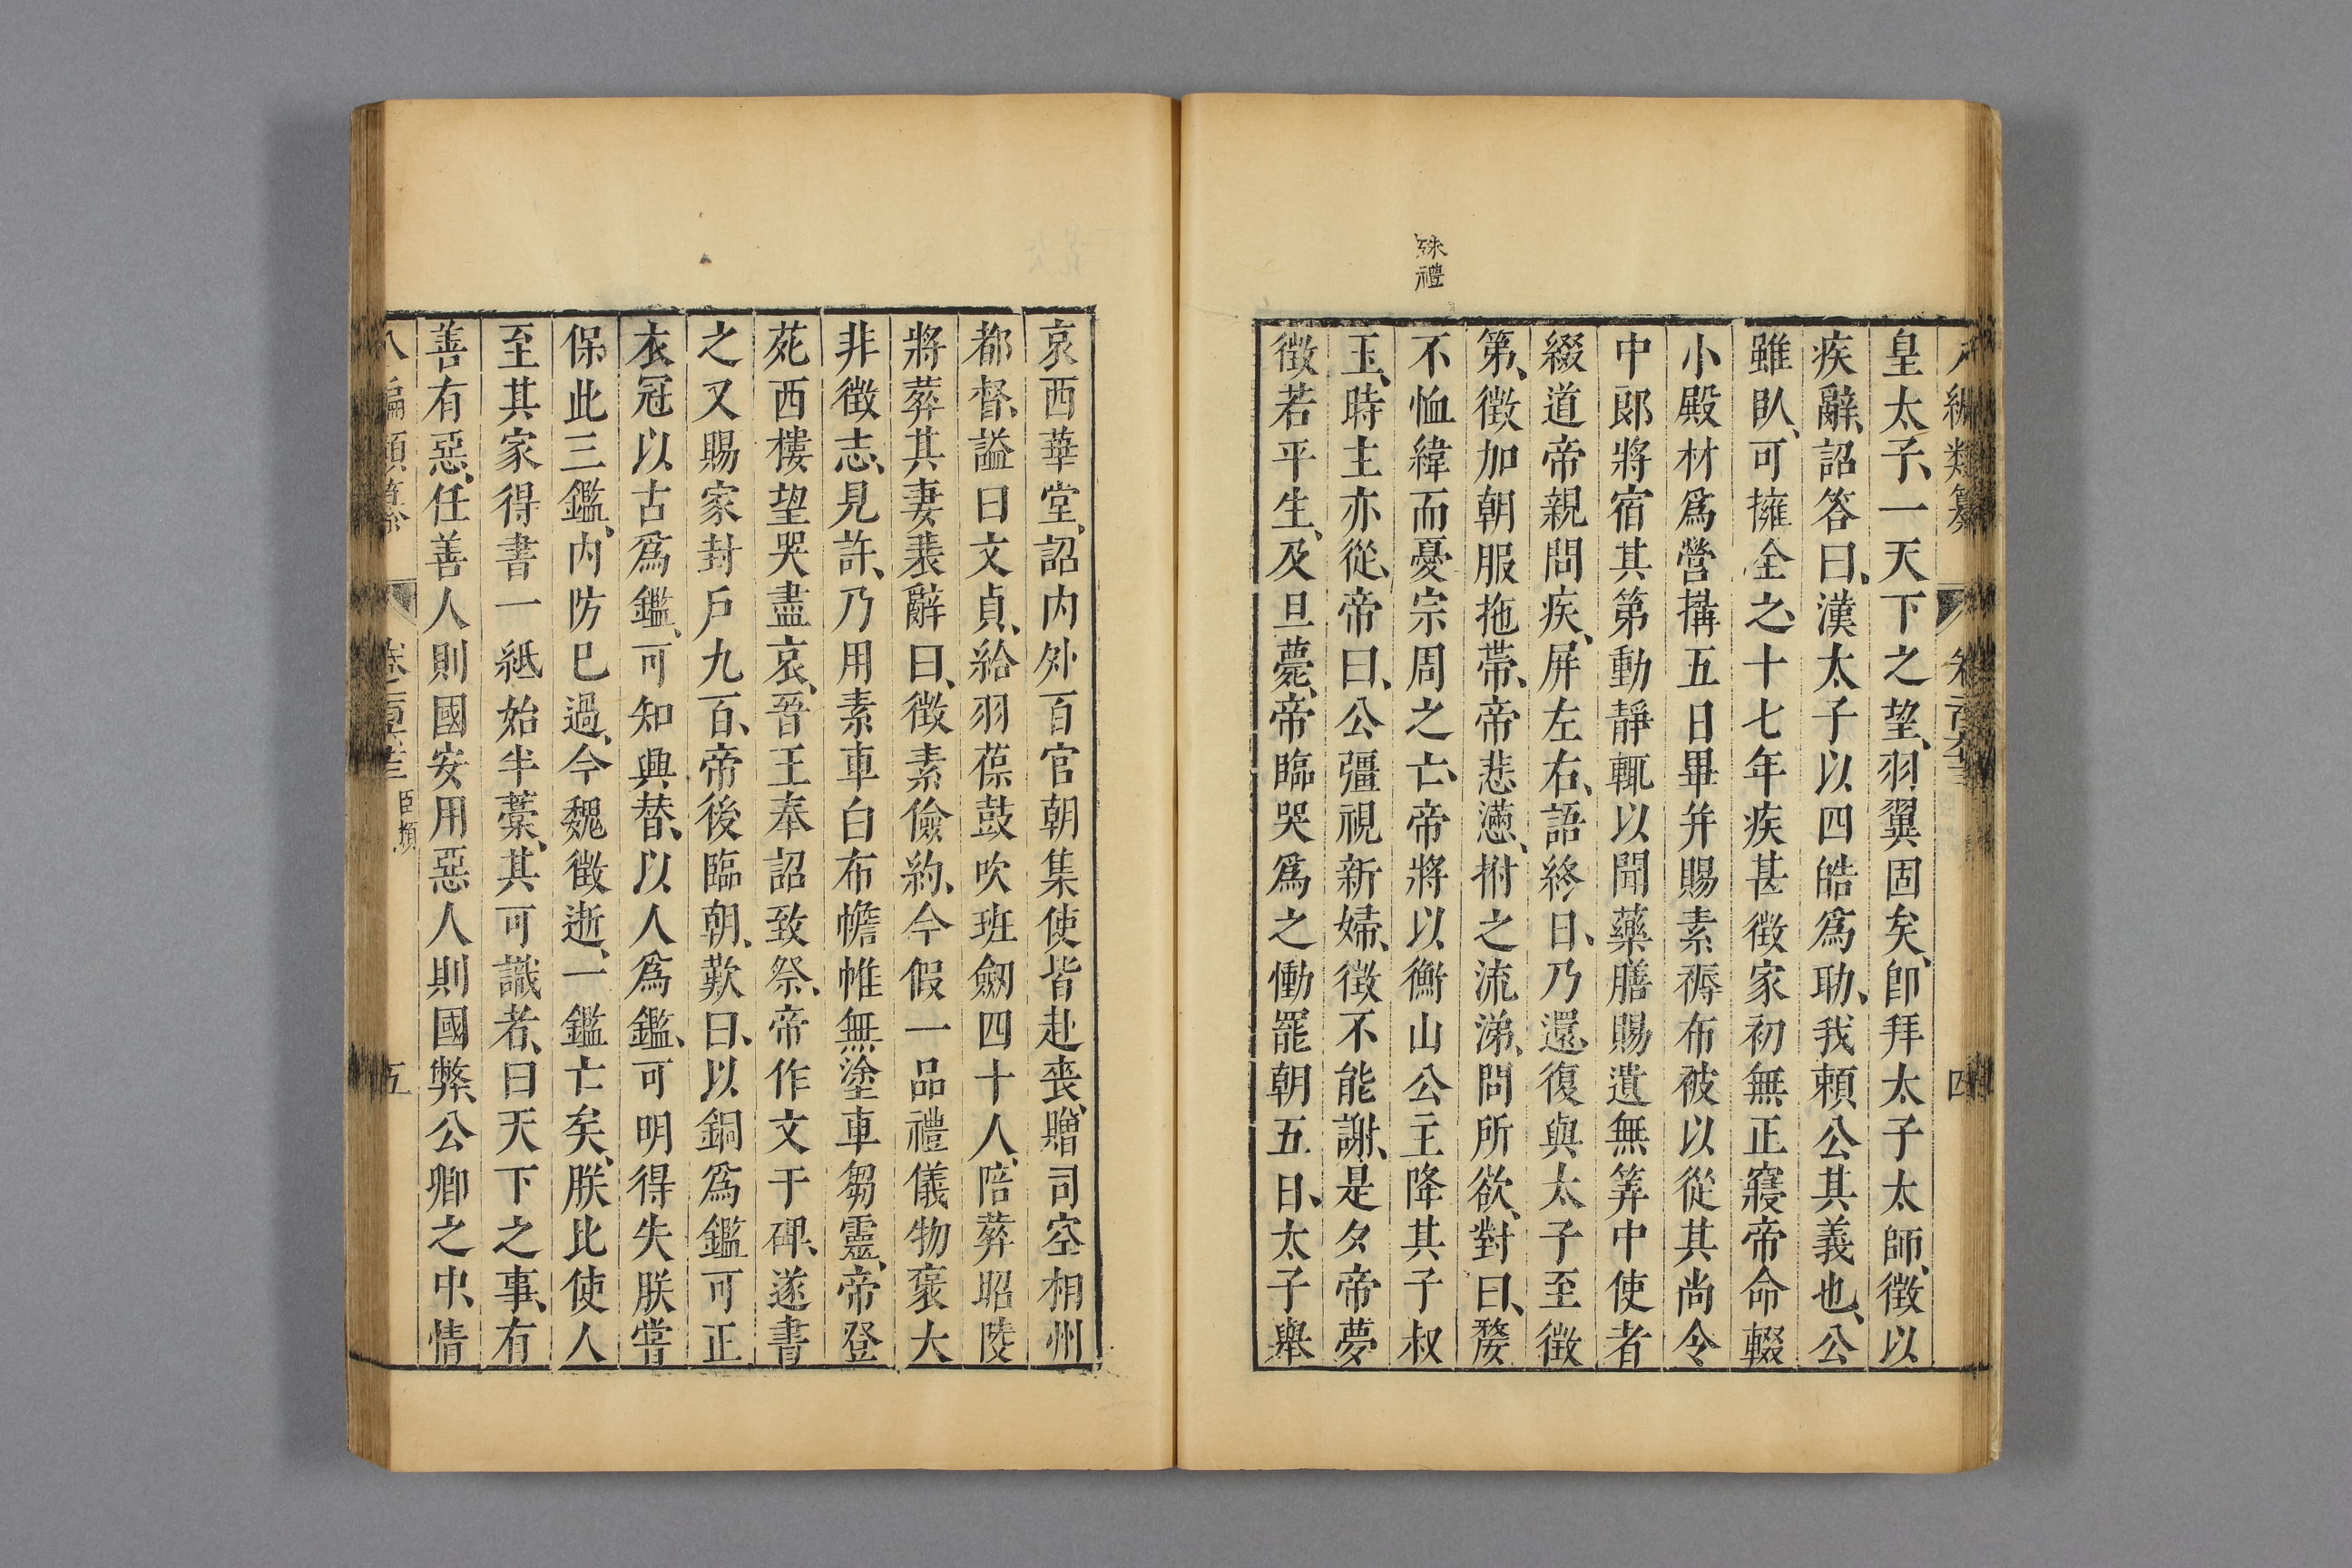 殊禮
皇太子、一天下之望、羽翼固矣、卽拜太子太師、徵以
疾辭、詔答曰、漢太子以四皓爲助、我賴公其義也、公
雖臥、可擁全之、十七年疾甚徵家初無正寢帝命輟
小殿材爲營搆五日畢并賜素褥布被以從其尚令
中郞將宿其第動靜輒以聞藥膳賜遺無筭中使者
綴道帝親問疾、屏左右、語終日、乃還、復與太子至徵
第、徵加朝服拖帶、帝悲懣、拊之流涕、問所欲、對曰、嫠
不恤緯而憂宗周之亡、帝將以衡山公主降其子叔
玉、時主亦從、帝曰、公彊視新婦、徵不能謝、是夕帝夢
徵若平生、及旦薨、帝臨哭爲之慟罷朝五日、太子舉
哀西華堂、詔內外百官朝集使皆赴喪、贈司空相州
都督、謚曰文貞、給羽葆鼓吹班劒四十人、陪葬昭陵
將葬其妻裴辭曰、徵素儉約、今假一品禮儀物褒大
非徵志、見許、乃用素車白布幨帷無塗車芻靈、帝登
苑西樓望哭盡哀、晉王奉詔致祭、帝作文于碑、遂書
之又賜家封戶九百、帝後臨朝、歎曰、以銅爲鑑可正
衣冠以古爲鑑、可知興替、以人爲鑑、可明得失朕嘗
保此三鑑、內防巳過、今魏徵逝、一鑑亡矣、朕比使人
至其家得書一紙始半藁、其可識者、曰天下之事、有
善有惡、任善人則國安用惡人則國弊、公卿之中、情